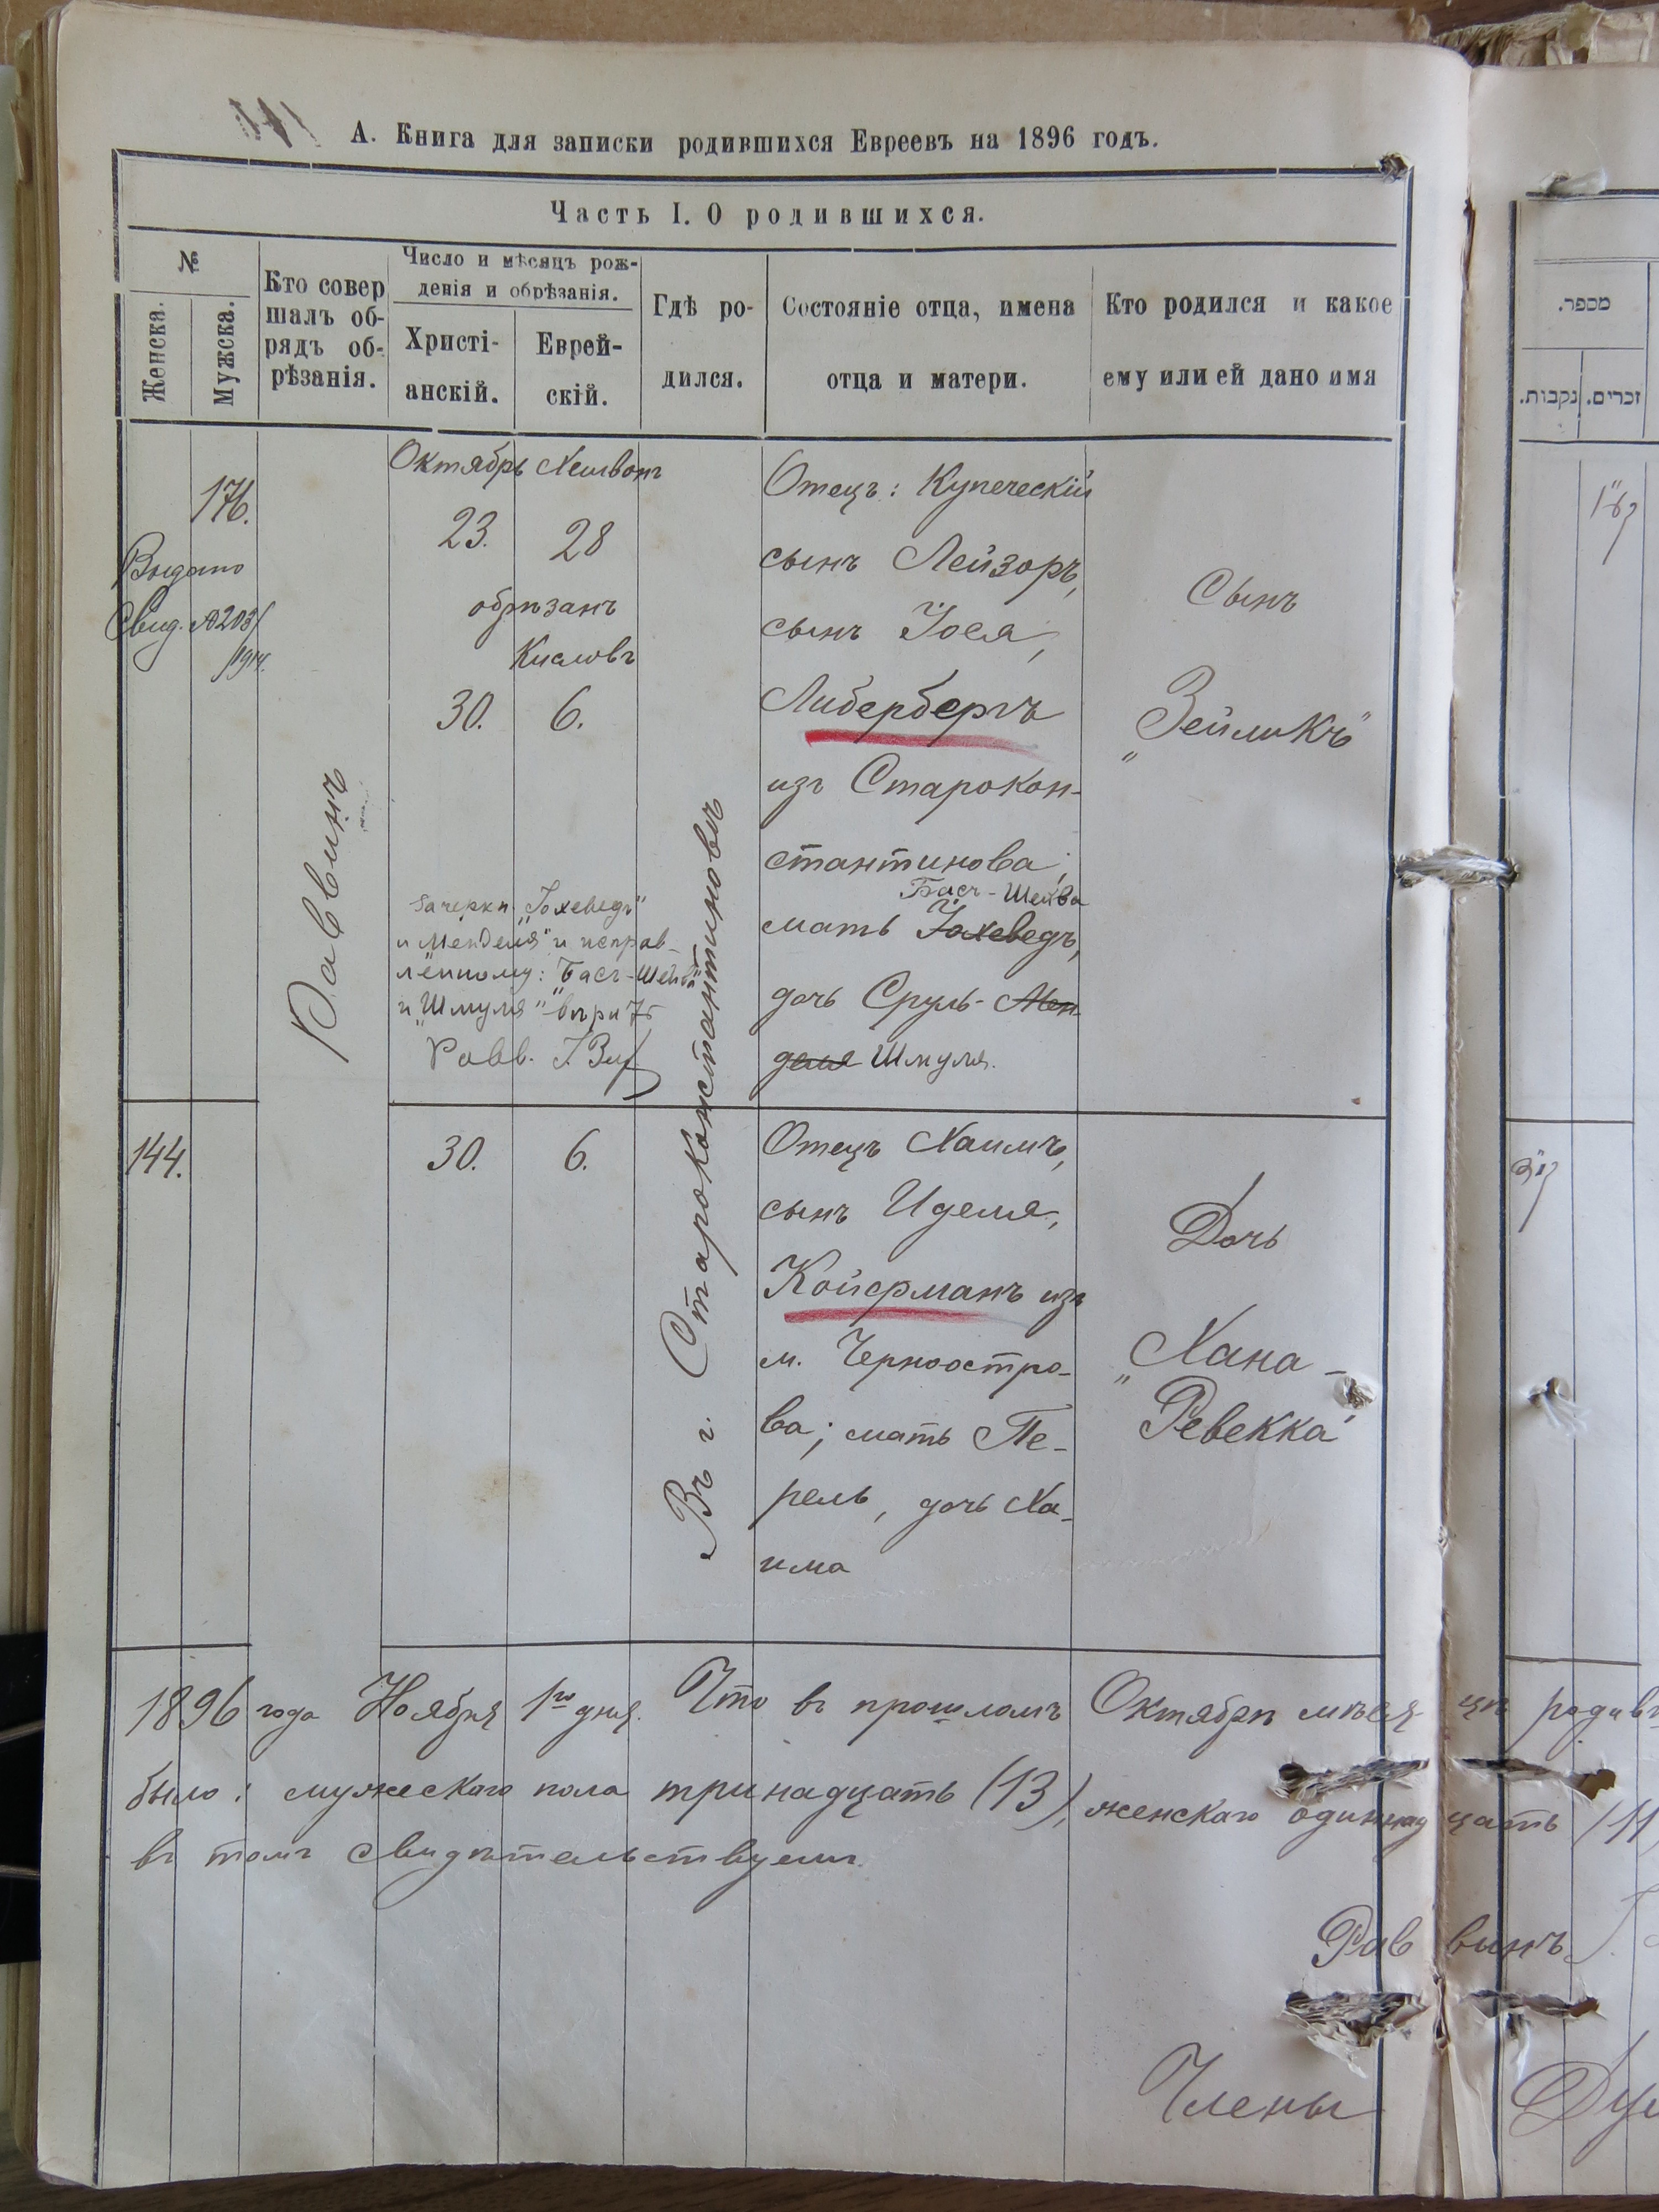 А. Книга для записки родившихся Евреевъ на 1896 годъ.
Часть I. О родившихся.
№
Женска.
Мужска.
Кто совер
шалъ об-
рядъ об-
рѣзанія.
Число и мѣсяцъ рож-
денія и обрѣзанія.
Христі-
анскій.
Еврей-
скій.
Гдѣ ро-
дился.
Состояніе отца, имена
отца и матери.
Кто родился и какое
ему или ей дано имя
מספר.
נקבות.
זכרים.
176.
Выдано
Свид. №203/
1914.
Раввинъ
Октябрь Хешвонъ
23. 28
обрѣзанъ
Кислова
30. 6.
зачеркн. „Іохеведъ"
и „Менделя" и исправ-
ленному: „Бася-Шейва"
и „Шмуля" вѣрить
Равв.
Въ г. Староконстантиновѣ
Отецъ: Купеческій
сынъ Лейзоръ,
сынъ Іося,
Либербергъ
изъ Старокон-
стантинова;
Бася-Шейва
мать Іохеведъ,
дочь Сруль-Мен
деля Шмуля.
Сынъ
„Зейликъ"
144.
30. 6.
Отецъ Хаимъ,
сынъ Иделя,
Койерманъ изъ
м. Черноостро-
ва; мать Пе-
рель, дочь Ха-
има
Дочь
„Хана-
Ревекка"
1896 года Ноября 1го дня. Что въ прошломъ Октябрѣ мѣсяцѣ родив
было: мужескаго пола тринадцать (13), женскаго одиннадцать (11
въ томъ свидѣтельствуемъ.
Раввинъ
Члены Ду